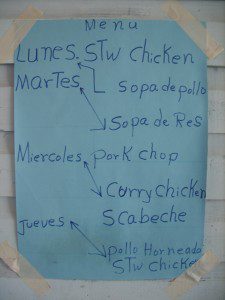 Menu
Lunes. STW chicken
Martes
Sopa de pollo
Sopa de Res
Miercoles pork chop
Curry chicken
Scabeche
Jueves
pollo Horneado
STW chicken